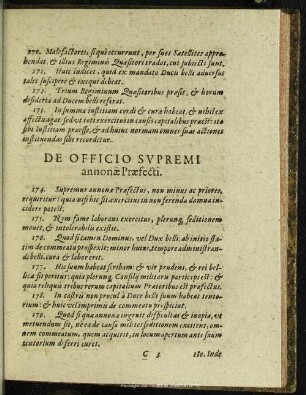 170. Malefactores, si qui occurrunt, per suos Satellites appre-
hendat, & illius Regiminis Quæstori tradat, cui subjecti sunt.
171. Huic indicet, quid ex mandato Ducis belli adversus
tales suscipere & exequi debeat.
172. Trium Regiminum Quæstoribus præest, & horum
desideria ad Ducem belli refert.
173. In summa justitiam cordi & curæ habeat, & nihil ex
affectu agat sed uti tot exercitui in causis capitalibus præest: ita
sibi justitiam præesse, & ad hujus normam omnes suas actiones
instituendas sibi recorditur.
DE OFFICIO SVPREMI
annonæ Præfecti.
174. Supremus annonæ Præfectus, non minus ac priores,
requiritur: quia nisi hic sit exercitus in non ferenda damna in-
cidere potest.
175. Nam fame laborans exercitus, plerunq; seditionem
movet, & intolerabilis existit.
176. Quod si tamen Dominus, vel Dux belli, ab initio sta-
tim de commeatu prospexit: minor huic, tempore administran-
di belli, cura & labor erit.
177. His suum habeat scribam: & vir prudens, & rei bel-
licæ sit peritus: quia plerunq; Consily militaris particeps est: &
quia reliquis tribus rerum capitalium Prætoribus est præfectus.
178. In castris non procul à Duce belli suum habeat tento-
rium: & huic vel imprimis de commeatu prospiciat.
179. Quod si qua annona ingruit difficultas & inopia, vt
metuendum sit, ne ea de causa milites seditionem excitent, om-
nem commeatum, quem acquirit, in locum apertum ante suum
tentorium deferri curet.
C 3 180. Inde